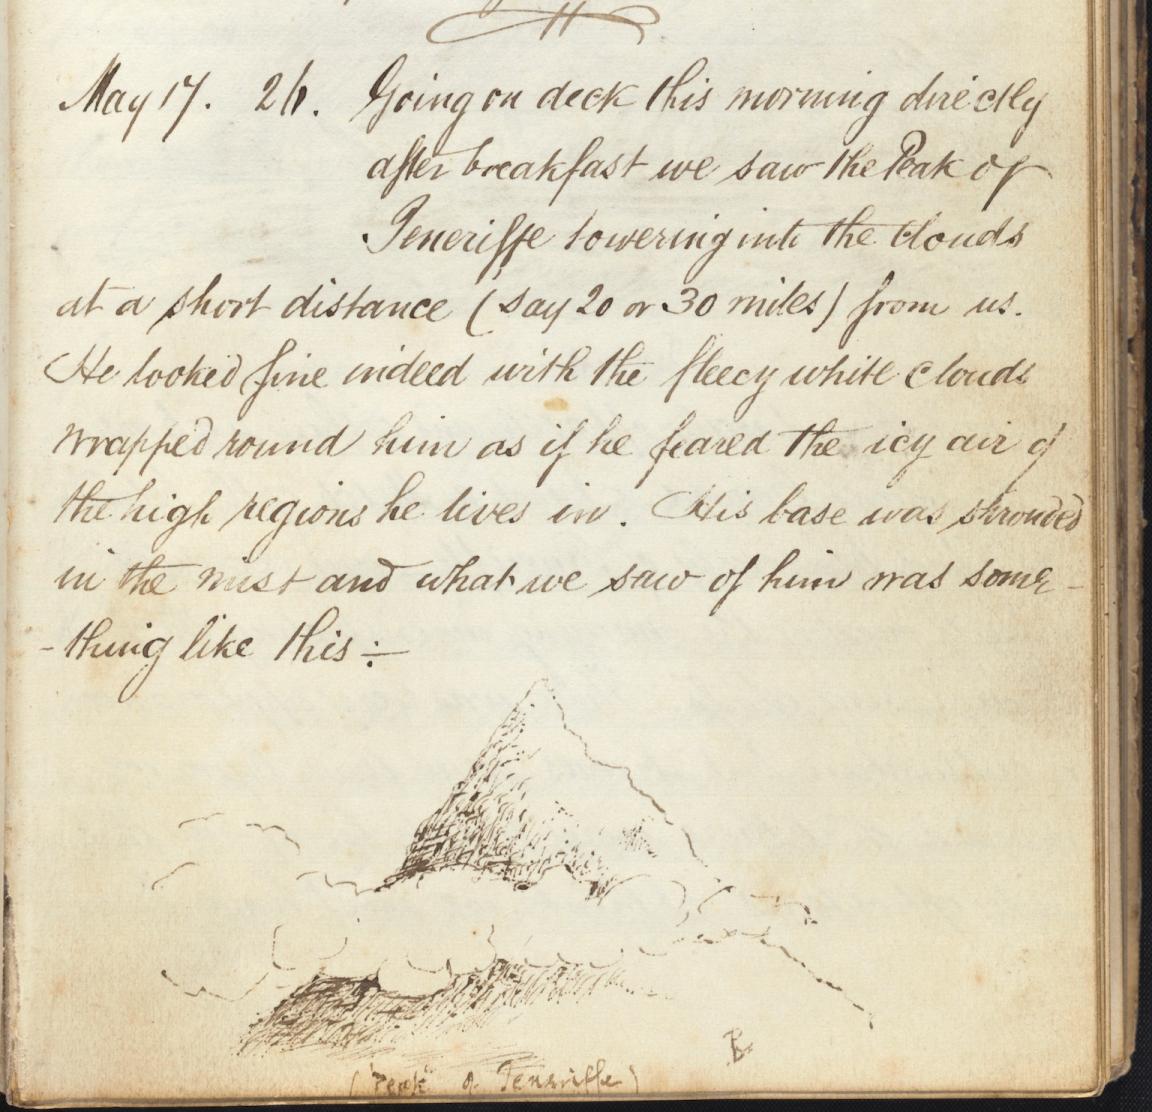 May 17. 26. Going on deck this morning directly
after breakfast we saw the Peak of
Teneriffe towering into the clouds
at a short distance (say 20 or 30 miles) from us.
He looked fine indeed with the fleecy white clouds
wrapped round him as if he feared the icy air of
the high regions he lives in. His base was shrouded
in the mist and what we saw of him was some-
-thing like this:-
B.
(Peak of Teneriffe)